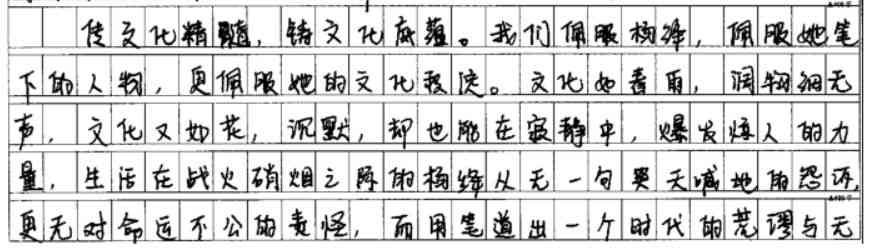 传文化精髓，铸文化底蕴。我们佩服杨绛，佩服她笔
下的人物，更佩服她的文化积淀。文化如春雨，润物细无
声，文化又如花，沉默，却也能在寂静中，爆发惊人的力
量，生活在战火硝烟之际的杨绛从无一句哭天喊地的怨诉，
更无对命运不公的责怪，而用笔道出一个时代的荒谬与无